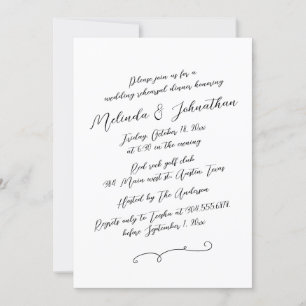 Please join us for a
wedding rehearsal dinner honoring
Melinda & Johnathan
Friday, October 18, 20xx
at 6:30 in the evening
Red rock golf club
384 Main west st. Austin Texas
Hosted by The Anderson
Regrets only to Teesha at 804.555.6878.
before September 1, 20xx